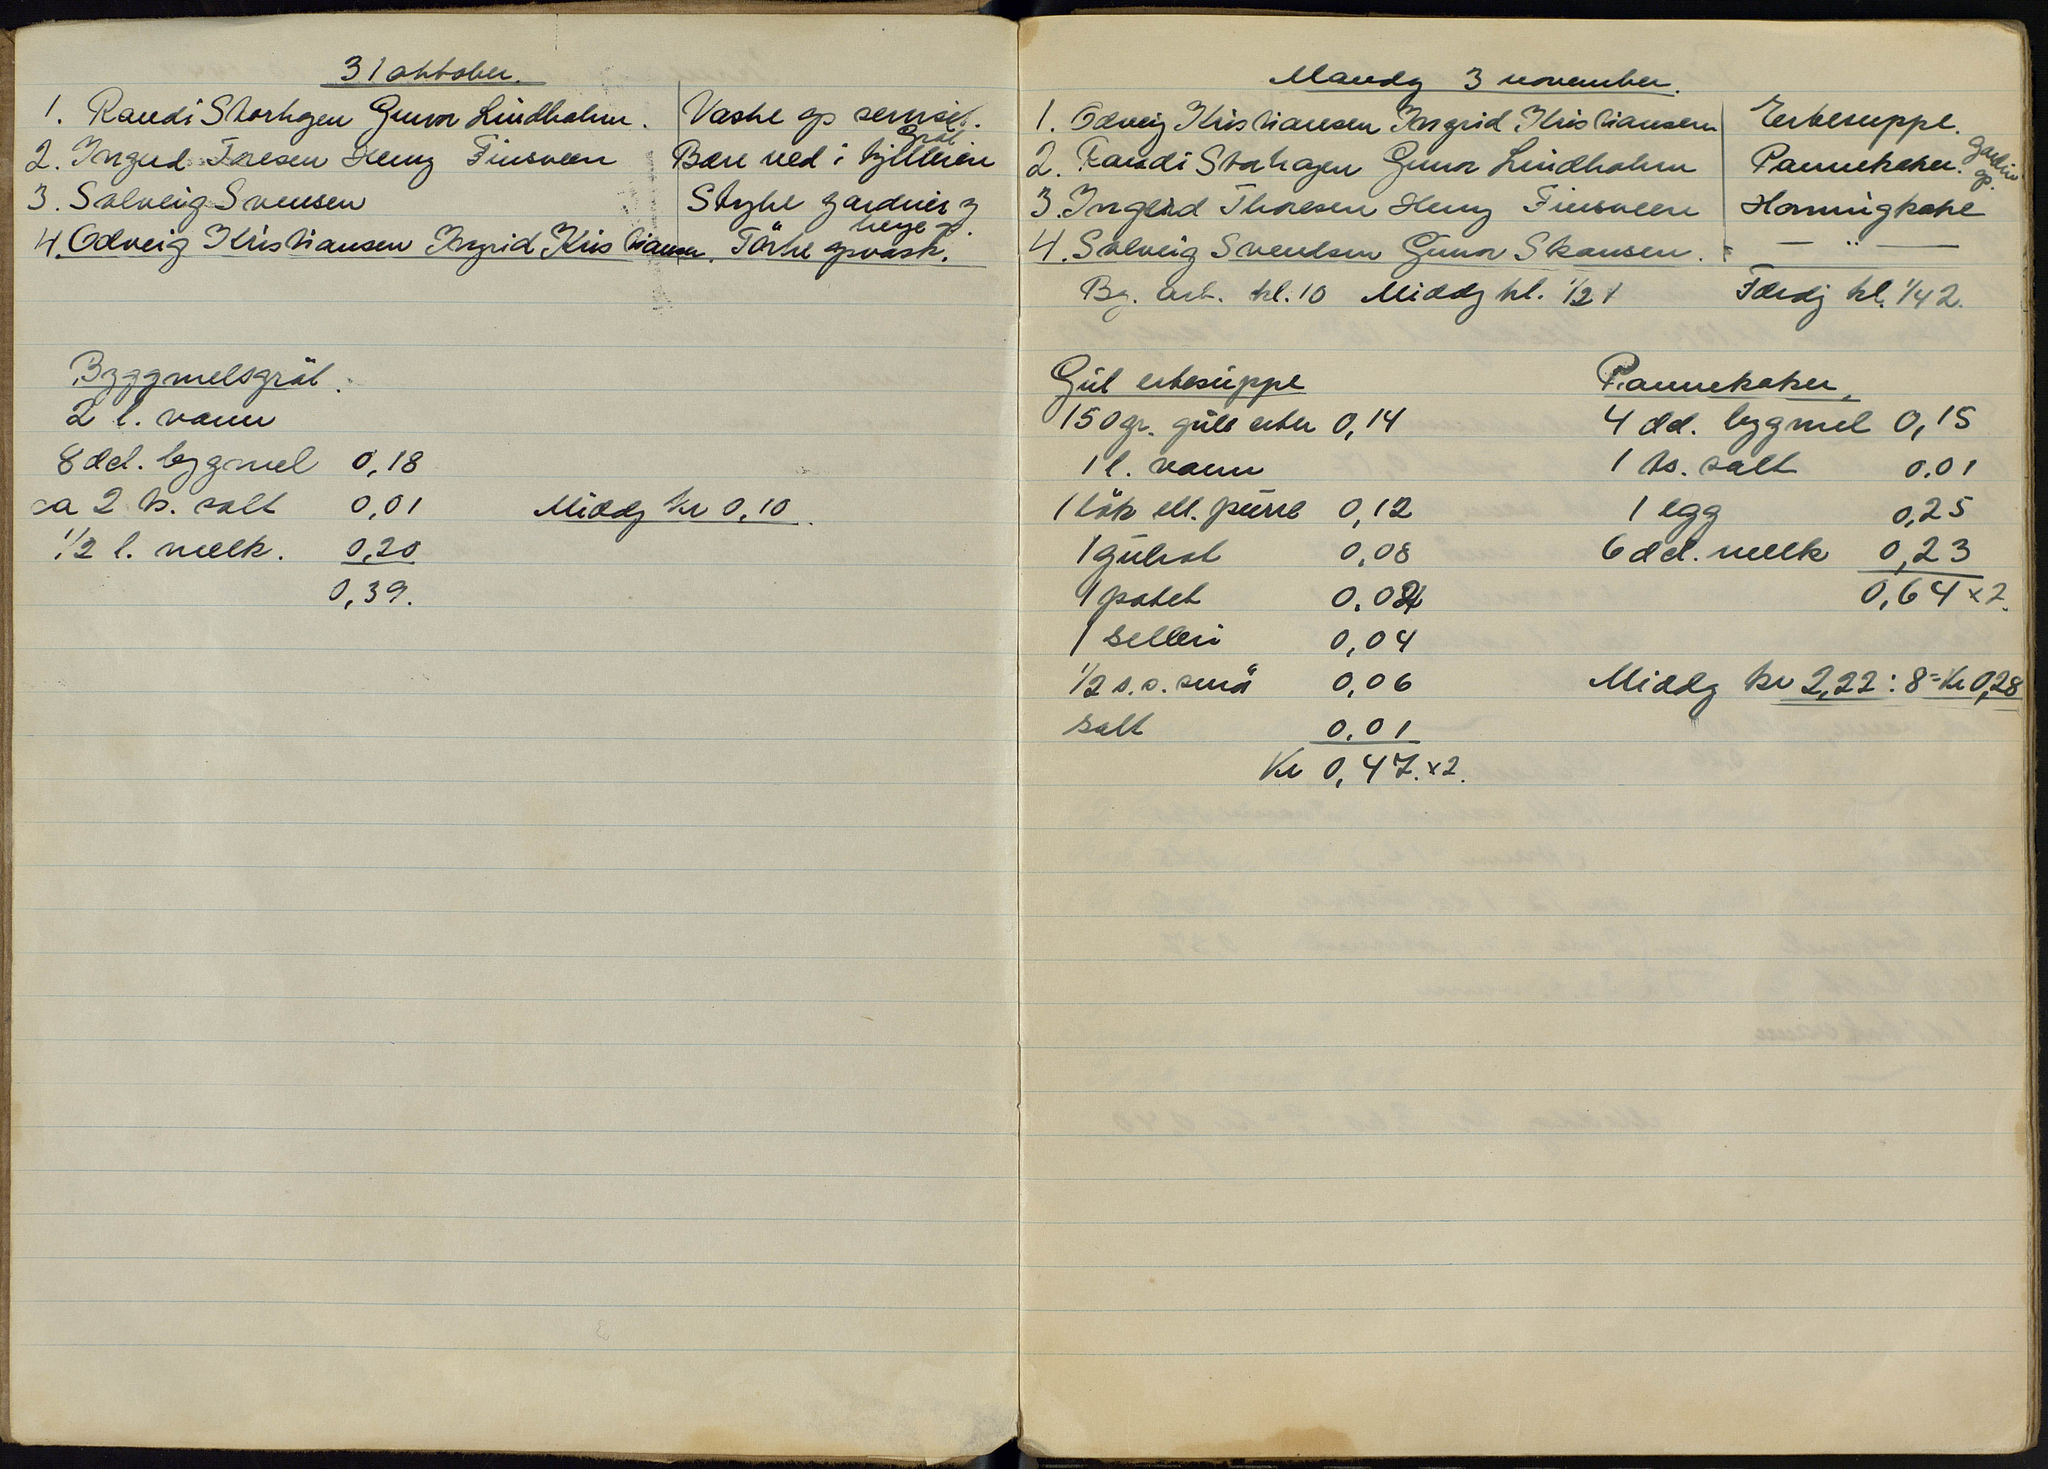 31 oktober.
1. Randi Storhagen Gunvor Lindholm. Vaske op servist.
Gröt
2. Ingerd Toresen Henny Finsveen Bære ved i kjelleren
3. Solveig Svensen Stryke gardiner og
henge op.
4. Odveig Kristiansen Ingrid Kristiansen. Törke opvask.
Byggmelsgröt.
2 l. vann
8 dcl. bygmel 0,18
ca 2 ts. salt 0,01 Middg kr 0,10.
1/2 l. melk. 0,20
0,39.
Mandg 3 november.
1. Odveig Kristiansen Ingrid Kristiansen Ertesuppe.
2. Randi Storhagen Gunvor Lindholm Pannekaker. Gardin op.
3. Ingerd Thoresen Henny Finsveen Honningkake
4. Solveig Svendsen Gunvor Skansen. — " —
Bg. arb. kl. 10 Middg kl. 1/2 1 Færdg kl. 1/4 2.
Gul ertesuppe
150 gr. gule erter 0,14
1 l. vann
1 lök ell. purre 0,12
1 gulrot 0,08
1 potet 0,02
1 selleri 0,04
1/2 s.s. smör 0,06
salt 0,01
Kr 0,47. x2.
Pannekaker,
4 dcl. bygmel 0,15
1 ts. salt 0.01
1 egg 0,25
6 dcl. melk 0,23
0,64 x 2.
Middg kr 2,22 : 8 = Kr 0,28